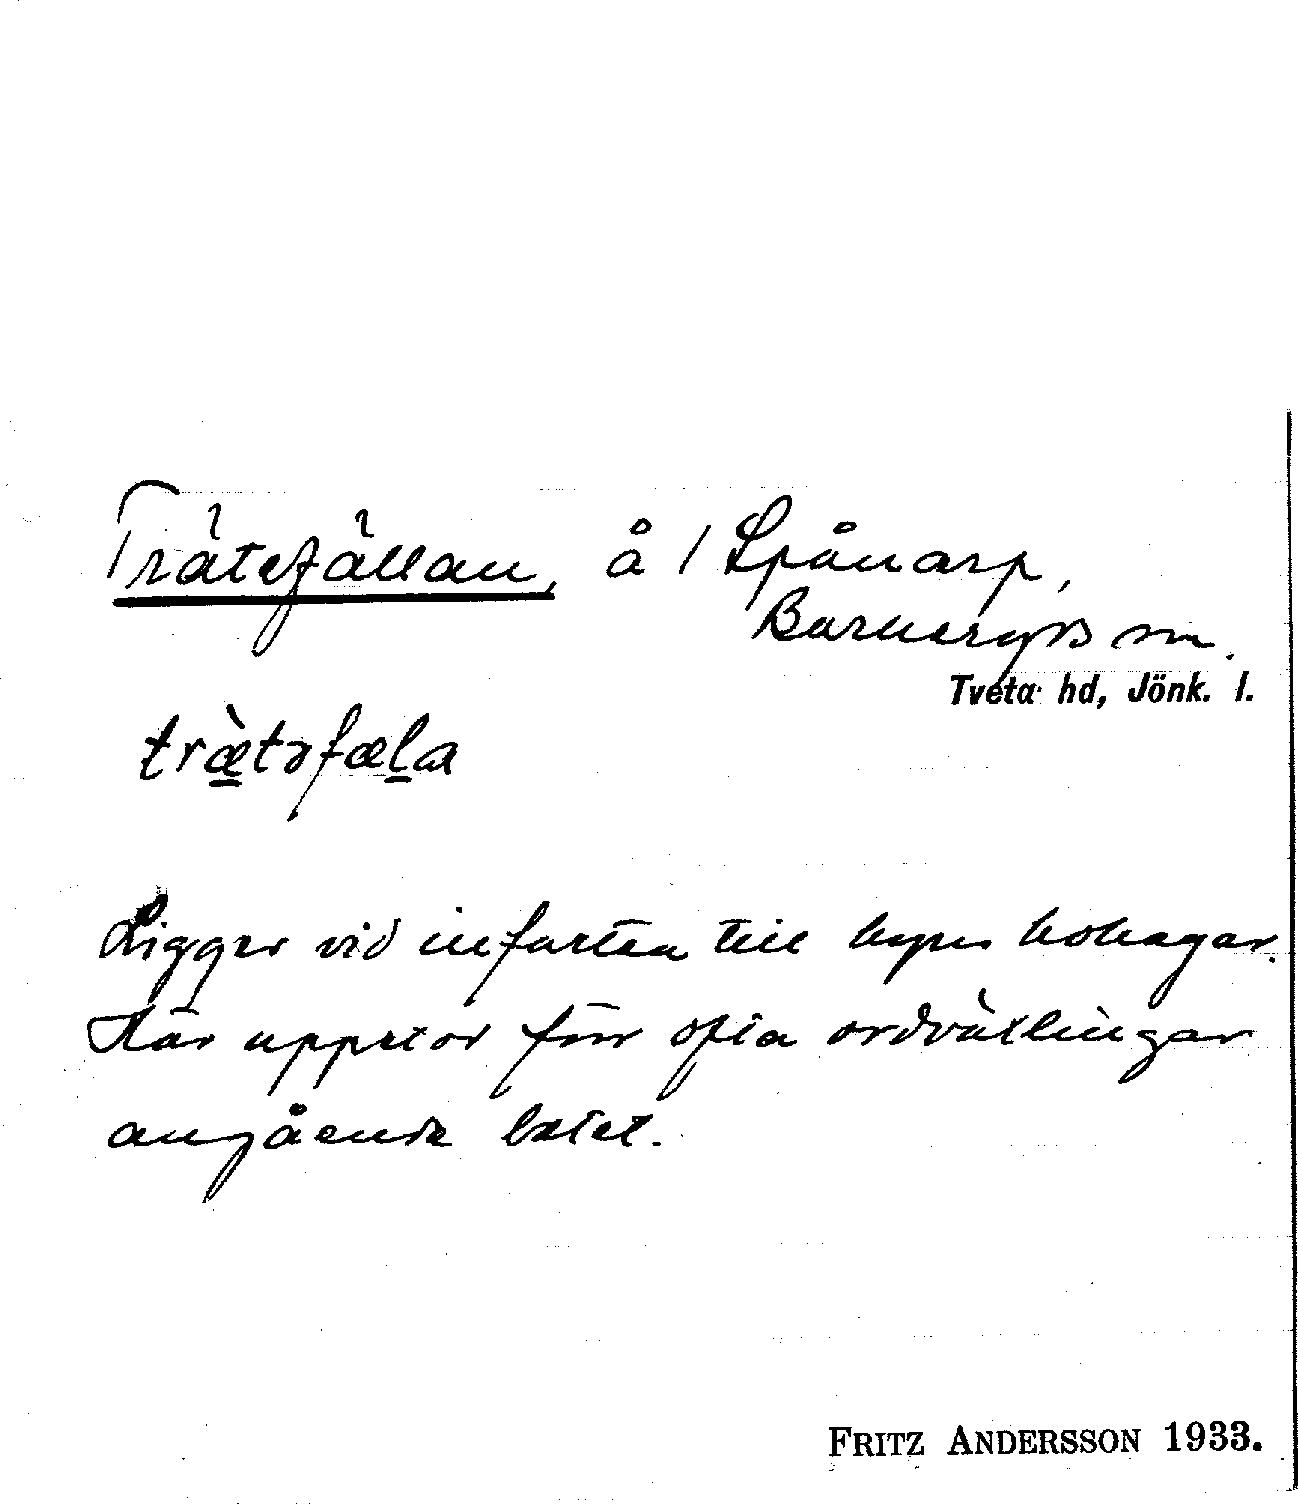 Trätefällan, å / Spånarp,
Barnarps sn.
Tveta hd, Jönk. l.
træ̀təfæla
Ligger vid infarten till byns kohagar.
Här uppstod förr ofta ordväxlingar
angående betet.
FRITZ ANDERSSON 1933.